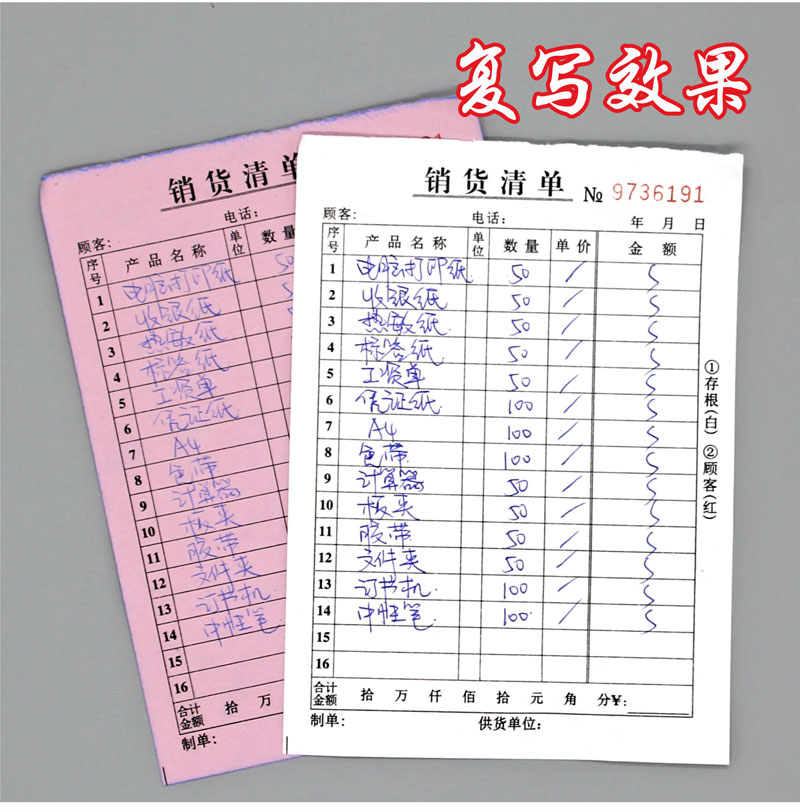 复写效果
销货清单
顾客： 电话：
序号 产品名称 单位 数量
1 电脑打印纸 50
2 收银纸
3 热敏纸
4 标签纸
5 工资单
6 凭证纸
7 A4
8 色带
9 计算器
10 板夹
11 胶带
12 文件夹
13 订书机
14 中性笔
15
16
合计金额 拾 万
制单：
销货清单 № 9736191
顾客： 电话： 年 月 日
序号 产品名称 单位 数量 单价 金额
1 电脑打印纸 50 /
2 收银纸 50 /
3 热敏纸 50 /
4 标签纸 50 /
5 工资单 50 /
6 凭证纸 100 /
7 A4 100 /
8 色带 100 /
9 计算器 50 /
10 板夹 50 /
11 胶带 50 /
12 文件夹 50 /
13 订书机 100 /
14 中性笔 100 /
15
16
合计金额 拾 万 仟 佰 拾 元 角 分¥:
制单： 供货单位：
①存根(白) ②顾客(红)